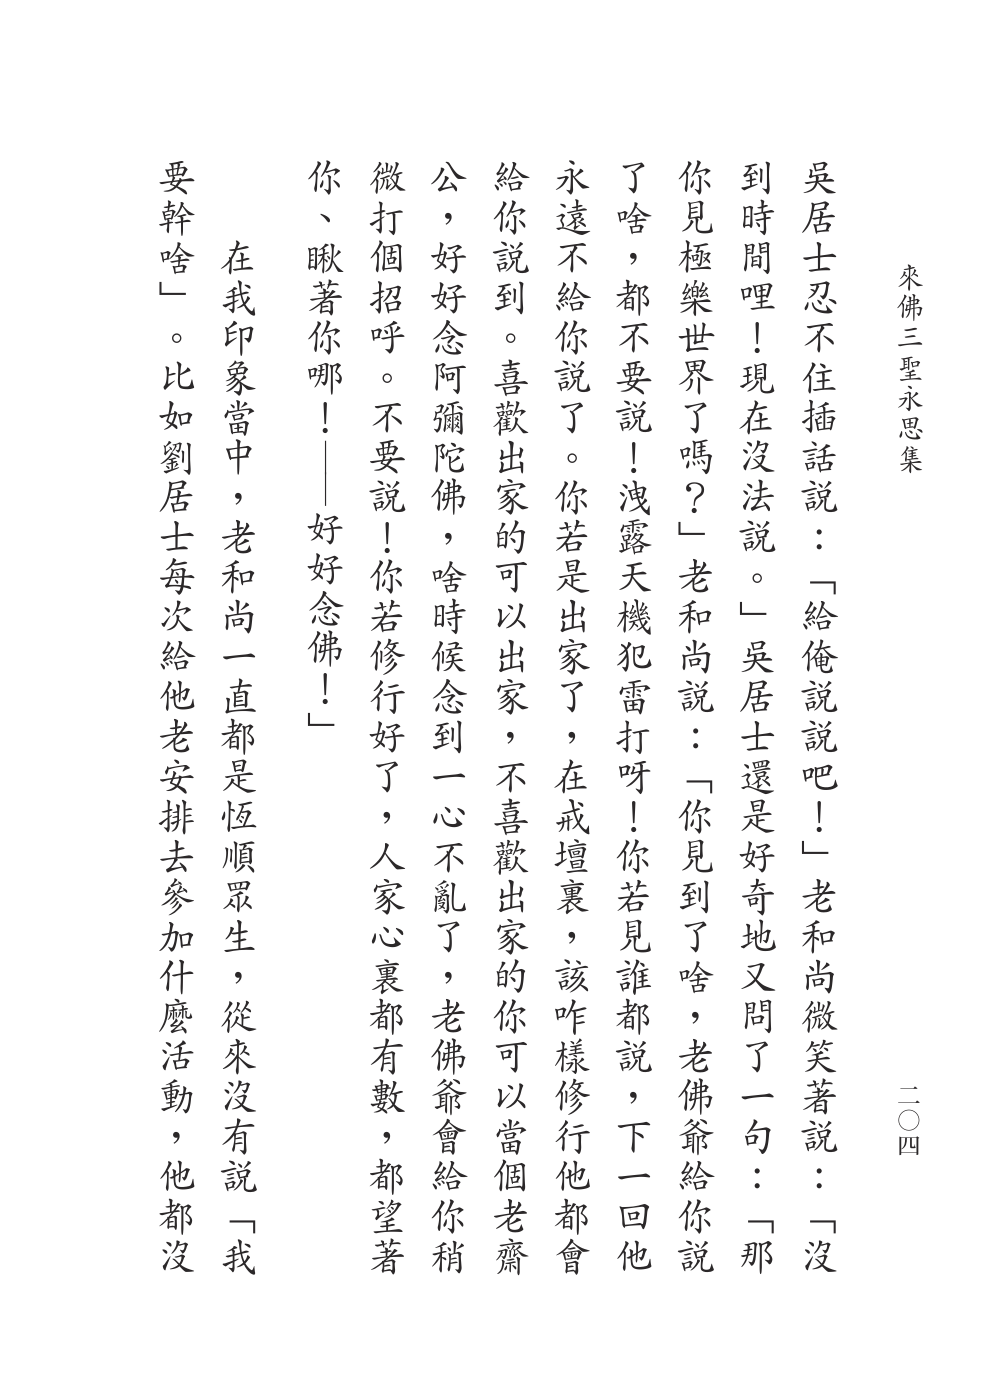 來佛三聖永思集
二〇四
吳居士忍不住插話說：「給俺說說吧！」老和尚微笑著說：「沒
到時間哩！現在沒法說。」吳居士還是好奇地又問了一句：「那
你見極樂世界了嗎？」老和尚說：「你見到了啥，老佛爺給你說
了啥，都不要說！洩露天機犯雷打呀！你若見誰都說，下一回他
永遠不給你說了。你若是出家了，在戒壇裏，該咋樣修行他都會
給你說到。喜歡出家的可以出家，不喜歡出家的你可以當個老齋
公，好好念阿彌陀佛，啥時候念到一心不亂了，老佛爺會給你稍
微打個招呼。不要說！你若修行好了，人家心裏都有數，都望著
你、瞅著你哪！——好好念佛！」
在我印象當中，老和尚一直都是恆順眾生，從來沒有說「我
要幹啥」。比如劉居士每次給他老安排去參加什麼活動，他都沒